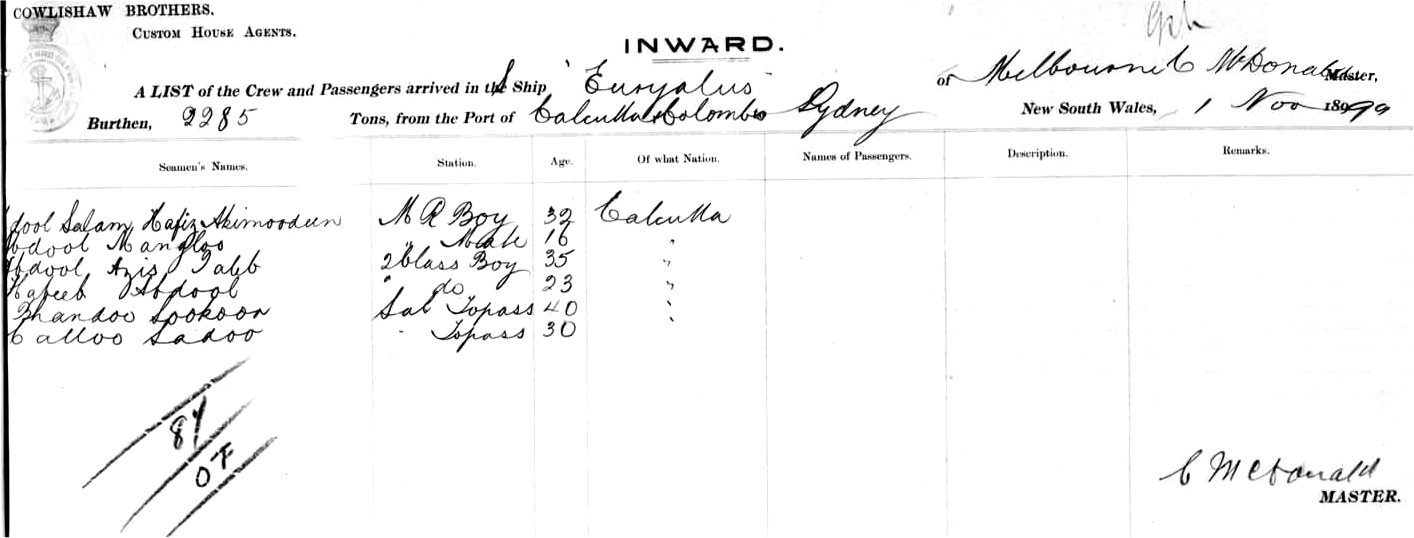 COWLISHAW BROTHERS.
CUSTOM HOUSE AGENTS.
INWARD.
A LIST of the Crew and Passengers arrived in the S Ship "Euryalus" of Melbourne C McDonald Master,
Burthen, 2285 Tons, from the Port of Calcutta & Colombo Sydney New South Wales, 1 Nov 1899
Seamen's Names. Station. Age. Of what Nation. Names of Passengers. Description. Remarks.
bdool Salam Hafiz Akimoodeen M R Boy 32 Calcutta
Abdool Mangloo " Mate 16 "
Abdool Azis Jabb 2 Class Boy 35 "
Habeeb Abdool " do 23 "
Jhandoo Sookoor Sal Topass 40 "
Calloo Sadoo " Topass 30
81
OF
C McDonald
MASTER.